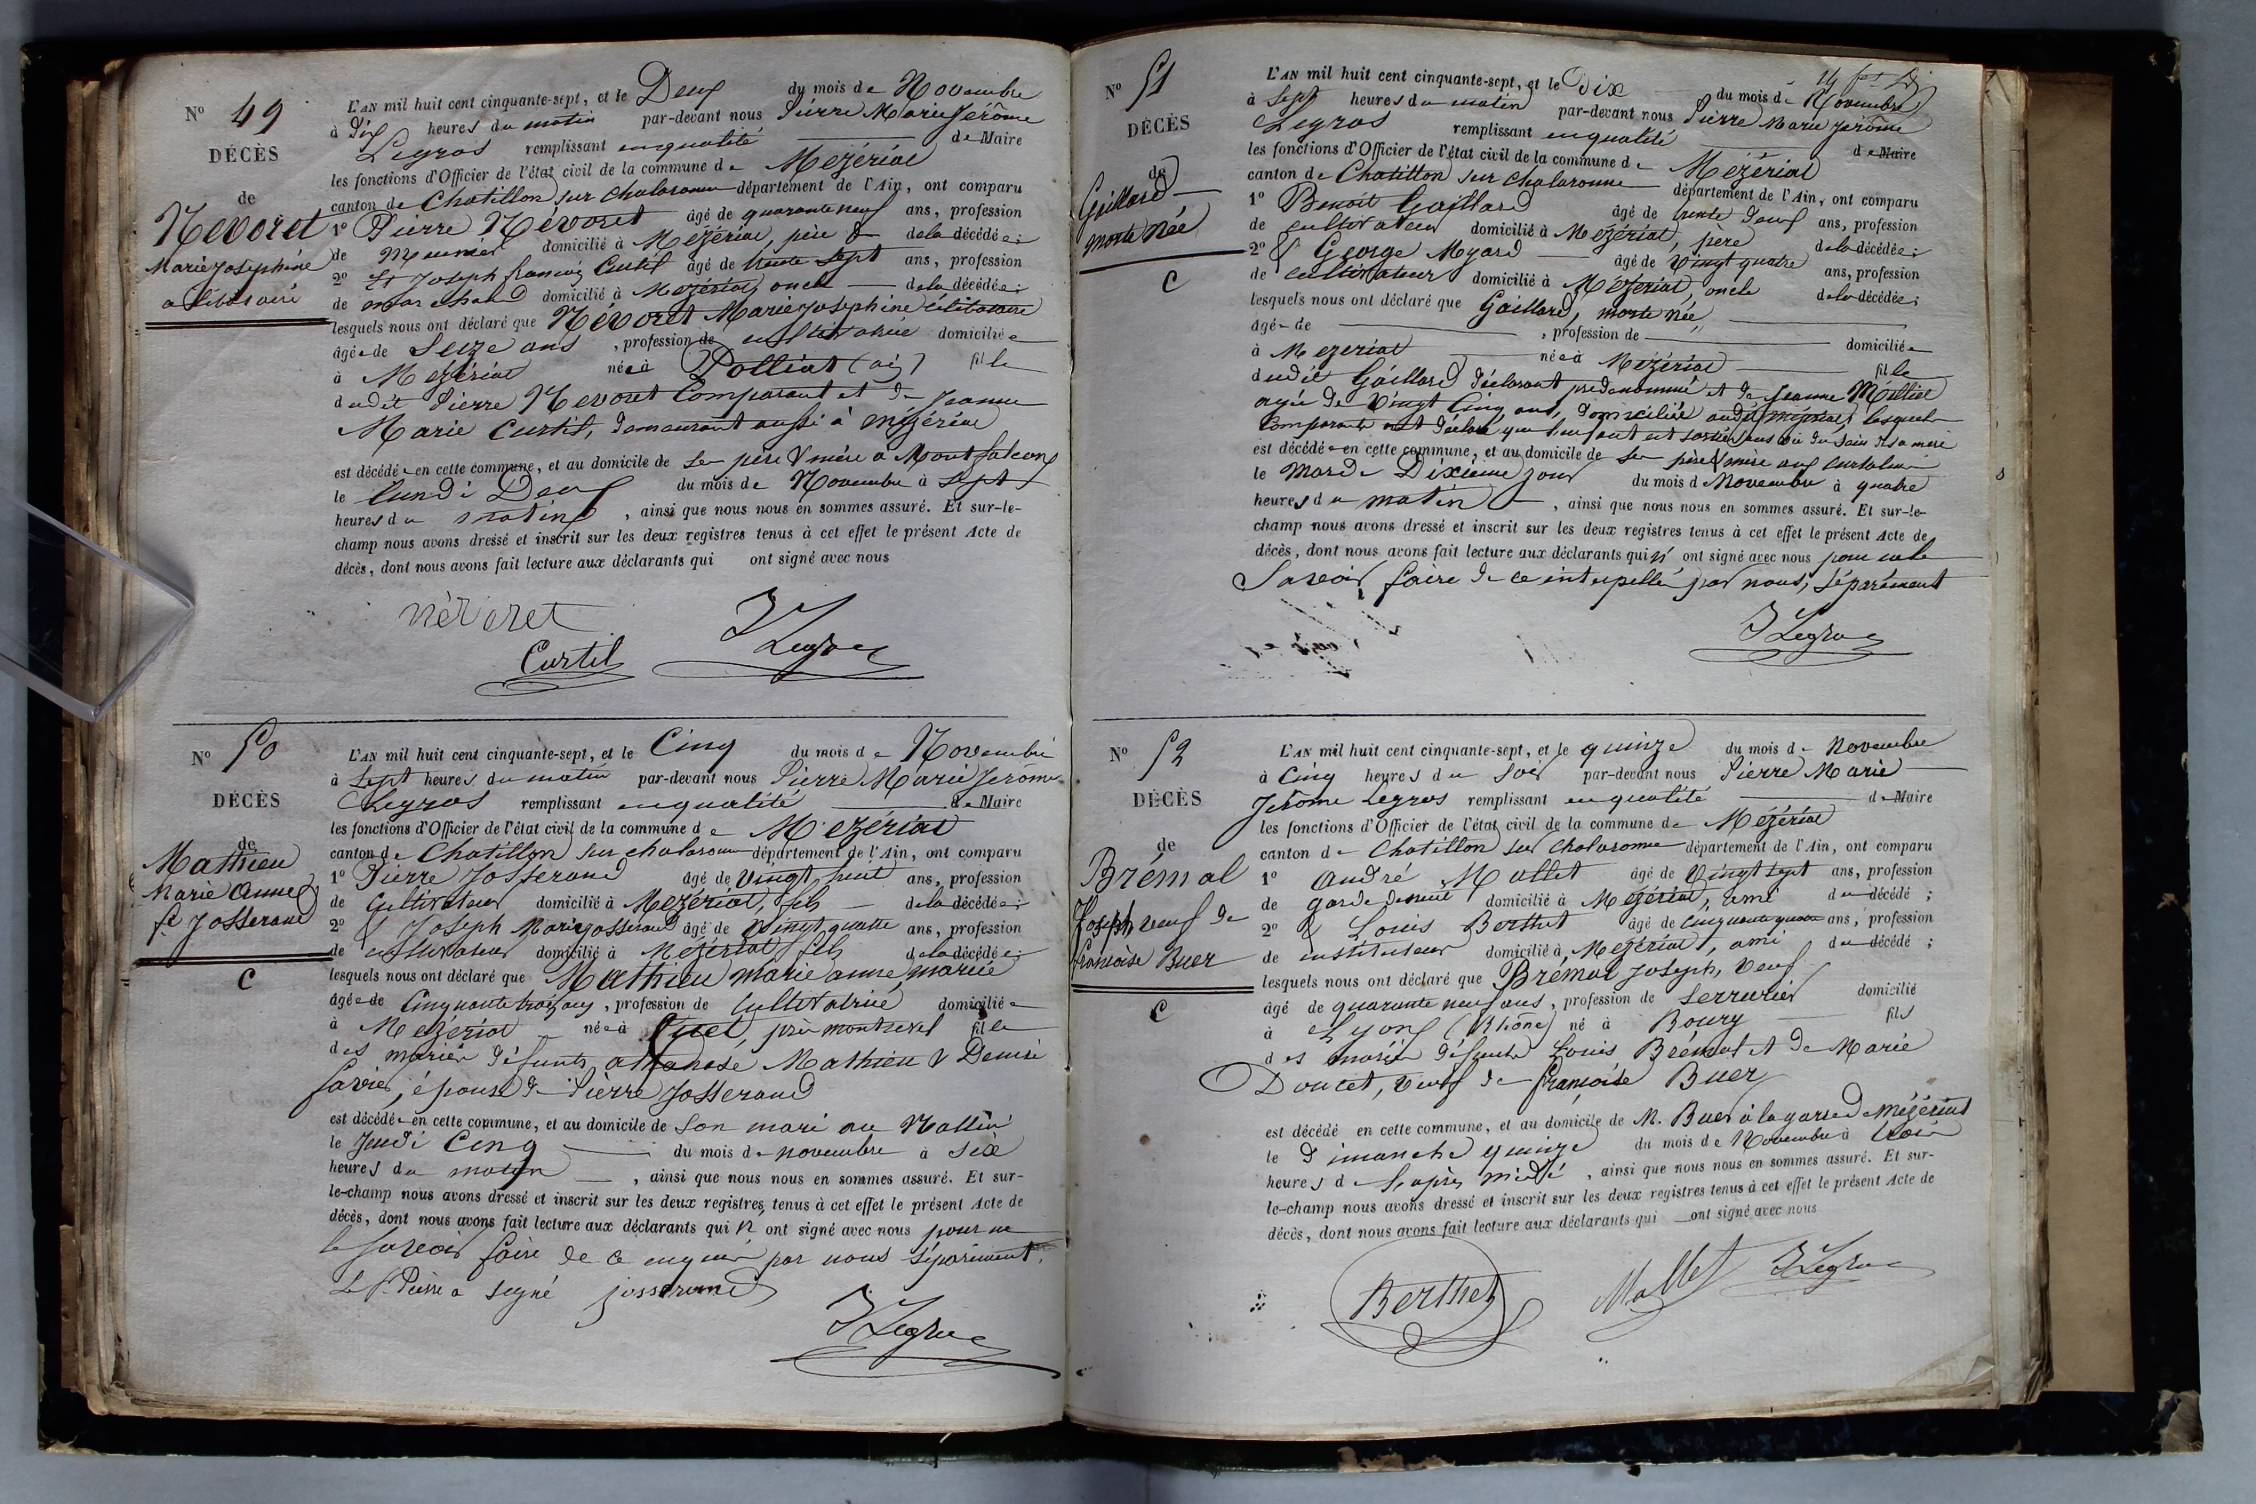 N° 49
DÉCÈS
de
Nevoret
Marie Josephine
célibataire
L'AN mil huit cent cinquante-sept, et le Deux du mois de Novembre
à dix heures du matin par-devant nous Pierre Marie Jérôme
Legros remplissant en qualité de Maire
les fonctions d'Officier de l'état civil de la commune de Mezériat
canton de Chatillon sur chalaronne département de l'Ain, ont comparu
1° Pierre Névoret âgé de quarante neuf ans, profession
de Meunier domicilié à Mezériat, père de la décédée;
2° Et Joseph françois Curtil âgé de trente sept ans, profession
de marchand domicilié à Mezériat, oncle de la décédée;
lesquels nous ont déclaré que Névoret Marie Josephine célibataire
âgée de Seize ans, profession de cultivatrice domiciliée
à Mezériat née à Polliat (ain) fille
dudit Pierre Nevoret Comparant et de Jeanne
Marie Curtil, demeurant aussi à mézériat
est décédée en cette commune, et au domicile de ses père & mère a Montfalcon
le lundi Deux du mois de Novembre à Sept
heures du matin, ainsi que nous nous en sommes assuré. Et sur-le-
champ nous avons dressé et inscrit sur les deux registres tenus à cet effet le présent Acte de
décès, dont nous avons fait lecture aux déclarants qui ont signé avec nous
névoret
Curtil JLegros
N° 50
DÉCÈS
de
Mathieu
Marie Anne
fe Josserand
C
L'AN mil huit cent cinquante-sept, et le Cinq du mois de Novembre
à Sept heures du matin par-devant nous Pierre Marie Jérôme
Legros remplissant en qualité de Maire
les fonctions d'Officier de l'état civil de la commune de Mezériat
canton de Chatillon sur chalaronne département de l'Ain, ont comparu
1° Pierre Josserand âgé de Vingt huit ans, profession
de Cultivateur domicilié à Mezériat, fils de la décédée;
2° & Joseph Marie Josserand âgé de Vingt quatre ans, profession
de cultivateur domicilié à Mezériat, fils de la décédée;
lesquels nous ont déclaré que Mathieu marie anne, mariée
âgée de Cinquante trois ans, profession de Cultivatrice domiciliée
à Mezériat née à Cuet, près montrevel fille
des mariés défunts athanase Mathieu & Denise
favier, épouse de Pierre Josserand
est décédée en cette commune, et au domicile de Son mari au
le Jeudi Cinq du mois de novembre à Six
heures du matin, ainsi que nous nous en sommes assuré. Et sur-
le-champ nous avons dressé et inscrit sur les deux registres tenus à cet effet le présent Acte de
décès, dont nous avons fait lecture aux déclarants qui n' ont signé avec nous pour ne
le savoir faire de ce enquis par nous séparément.
Le Sr Pierre a signé josserand
JLegros
N° 51
DÉCÈS
de
Gaillard
morte Née
C
L'AN mil huit cent cinquante-sept, et le Dix du mois de Novembre
à Sept heures du matin par-devant nous Pierre Marie Jérôme
Legros remplissant en qualité de Maire
les fonctions d'Officier de l'état civil de la commune de Mezériat
canton de Chatillon sur chalaronne département de l'Ain, ont comparu
1° Benoit Gaillard âgé de trente deux ans, profession
de cultivateur domicilié à Mezériat, père de la décédée;
2° & George Moyard âgé de Vingt quatre ans, profession
de cultivateur domicilié à Mézériat, oncle de la décédée;
lesquels nous ont déclaré que Gaillard, morte née,
âgée de, profession de domiciliée
à Mezeriat née à Mézériat fille
dudit Gaillard déclarant prédenommé et de Jeanne
agée de Vingt Cinq ans, domiciliée audit mézériat, lesquels
comparants ont déclaré que l'enfant est sortie sans vie du sein de sa mère
est décédée en cette commune, et au domicile de ses père & mère aux
le Mardi Dixième jour du mois de Novembre à quatre
heures du matin, ainsi que nous nous en sommes assuré. Et sur-le-
champ nous avons dressé et inscrit sur les deux registres tenus à cet effet le présent Acte de
décès, dont nous avons fait lecture aux déclarants qui n' ont signé avec nous pour ne le
Savoir faire de ce interpellé par nous, séparément
JLegros
N° 52
DÉCÈS
de
Brémal
Joseph veuf de
francoise Buer
C
L'AN mil huit cent cinquante-sept, et le quinze du mois de Novembre
à Cinq heures du Soir par-devant nous Pierre Marie
Jérôme Legros remplissant en qualité de Maire
les fonctions d'Officier de l'état civil de la commune de Mézériat
canton de Chatillon sur Chalaronne département de l'Ain, ont comparu
1° André Mallet âgé de Vingt sept ans, profession
de garde de nuit domicilié à Mezériat, ami du décédé;
2° & Louis Berthet âgé de cinquante quatre ans, profession
de instituteur domicilié à Mezériat, ami du décédé;
lesquels nous ont déclaré que Brémal Joseph, Veuf
âgé de quarante neuf ans, profession de Serrurier domicilié
à Lyon (Rhône) né à Bourg fils
des mariés défunts Louis Brémal et de Marie
Doucet, veuf de françoise Buer
est décédé en cette commune, et au domicile de M. Buer à la gare de Mézériat
le Dimanche quinze du mois de Novembre à trois
heures de l'après midi, ainsi que nous nous en sommes assuré. Et sur-
le-champ nous avons dressé et inscrit sur les deux registres tenus à cet effet le présent Acte de
décès, dont nous avons fait lecture aux déclarants qui ont signé avec nous
Berthet Mallet JLegros